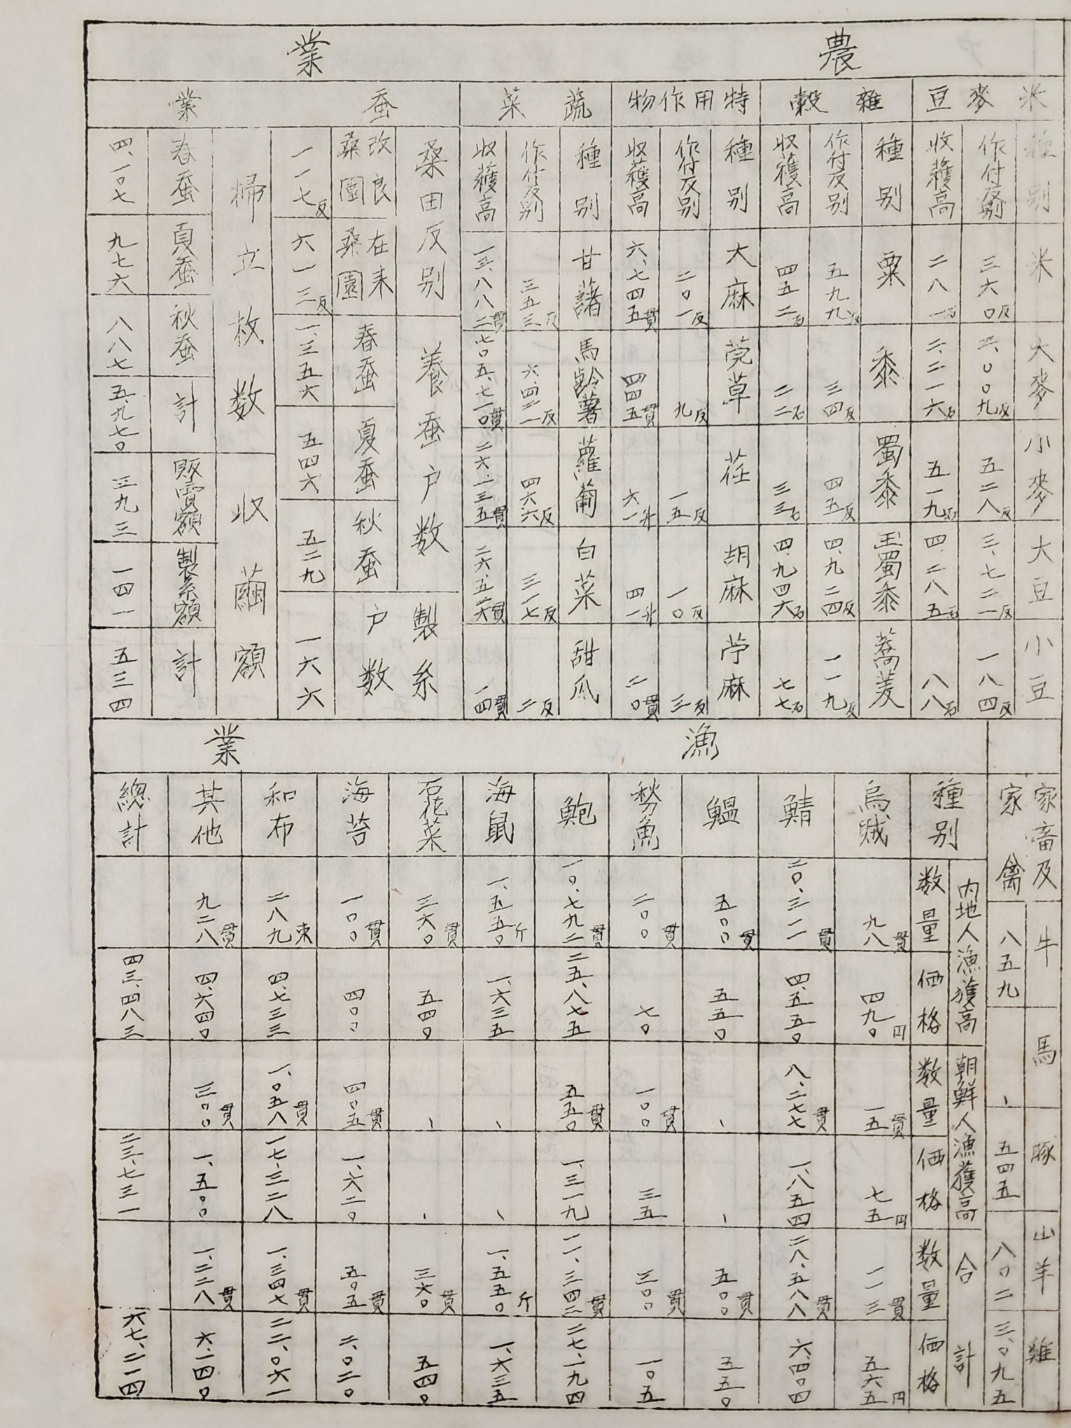 農業
米麥豆
種別 米 大麥 小麥 大豆 小豆
作付反別 三六〇反 二、〇〇九反 五二八反 三、七二一反 一八四反
收穫高 二八一石 二、二一六石 五一九石 四、二八五石 八八石
雜穀
種別 粟 黍 蜀黍 玉蜀黍 蕎麦
作付反別 五九九反 三四反 四五反 四、九二四反 一一九反
収穫高 四五二石 二二石 三三石 四、九四六石 七七石
特用作物
種別 大麻 莞草 荏 胡麻 苧麻
作付反別 二〇一反 九反 一五反 一〇反 三反
収穫高 六、七四五貫 四四五貫 六一升 四一升 二〇貫
蔬菜
種別 甘藷 馬齢薯 蘿蔔 白菜 甜瓜
作付反別 三五三反 六、四二一反 四六六反 三一七反 二反
収穫高 一三、八八二貫 七〇五、七一〇貫 二六、一三五貫 二六、五二六貫 一四貫
蚕業
桑田反別 養蚕戸数 製糸戸数
改良桑園 在来桑園 春蚕 夏蚕 秋蚕
一一七反 六一三反 一、三五六 五四六 五二九 一六六
掃立枚数 収繭額
春蚕 夏蚕 秋蚕 計 販賣額 製糸額 計
四、一〇七 九七六 八八七 五、九七〇 三九三 一四一 五三四
家畜及家禽
牛 馬 豚 山羊 雞
八五九 、 五四五 八〇二 三、〇九五
漁業
種別 内地人漁獲高 朝鮮人漁獲高 合計
数量 価格 数量 価格 数量 価格
烏賊 九八貫 四九〇円 一五貫 七五円 一一三貫 五六五円
鯖 二〇、三一一貫 四、五五〇 八、二七七貫 一、八五四 二八、五八八貫 六、四〇四
鰮 五〇〇貫 五五〇 、 、 五〇〇貫 五五〇
魚 二〇〇貫 七〇 一〇〇貫 三五 三〇〇貫 一〇五
鮑 一〇、七九二貫 二五、八七五 五五〇貫 一、三一九 一一、三四二貫 二七、一九四
海鼠 一、五五〇斤 一、六三五 、 、 一、五五〇斤 一、六三五
石花菜 三六〇貫 五四〇 、 、 三六〇貫 五四〇
海苔 一〇〇貫 四〇〇 四〇五貫 一、六二〇 五〇五貫 二、〇二〇
和布 二八九束 四、七三三 一、〇五八貫 一七、三二八 一、三四七貫 二二、〇六一
其他 九二八貫 四、六四〇 三〇〇貫 一、五〇〇 一、二二八貫 六、一四〇
總計 四三、四八三 二三、七三一 六七、二一四